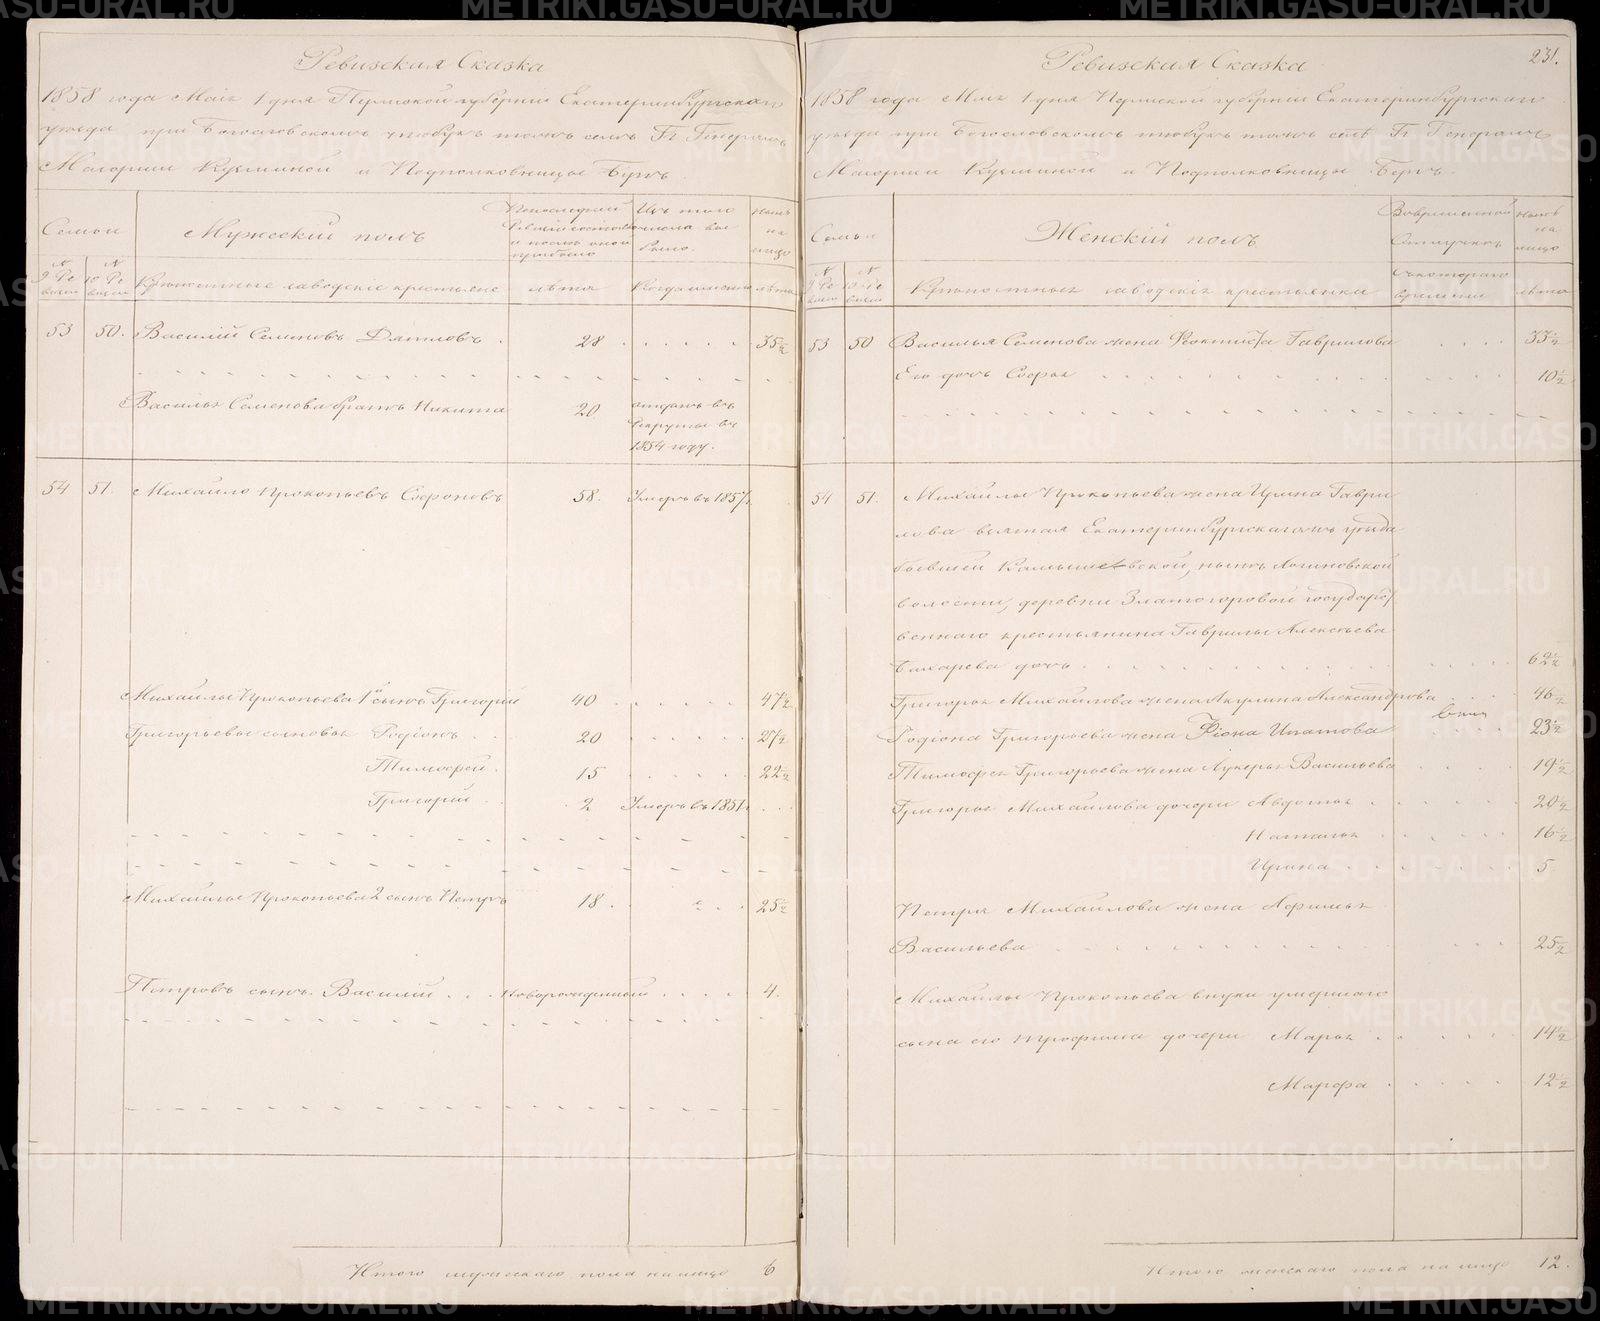 Ревизская Сказка
1858 года Мая 1 дня Пермской губернии Екатеринбургскаго
уезда при Богословскомъ рудникѣ томъ селѣ Гг. Генералъ
Маiорши и Подполковницы
Семьи
Мужескiй полъ
Изъ того числа выбыло
Нынѣ на лицо
№ 9 Ревизiи
№ 10 Ревизiи
Крѣпостные заводскiе крестьяне
лѣта
Когда именно
лѣта
53 50. Василiй Семеновъ 28 35½
Василья Семенова братъ Никита 20 отданъ въ
рекруты въ
1854 году.
54 51. Михайло Прокопьевъ Софоновъ 58. Умеръ въ 1857
Михайлы Прокопьева 1й сынъ Григорiй 40 47½
Григорьевы сыновья Родiонъ 20 27½
Тимофей. 15 22½
Григорiй 2 Умеръ въ 1851
Михайлы Прокопьева 2 сынъ Петръ 18 25½
Петровъ сынъ Василiй новорожденный 4.
Итого мужескаго пола на лицо 6
231.
Ревизская Сказка
1858 года Мая 1 дня Пермской губернiи Екатеринбургскаго
уезда при Богословскомъ томъ селѣ Гг. Генералъ
Маiорши и Подполковницы
Семьи
Женскiй полъ
Во временной отлучкѣ
Нынѣ на лицо
№ 9 Ревизiи
№ 10 Ревизiи
Крѣпостныя заводскiя крестьянки
съ котораго времени
лѣта
53 50 Василья Семенова жена Феоктиста Гаврилова 33½
Его дочь Софья 10½
54 51. Михайлы Прокопьева жена Ирина Гаври
лова взятая Екатеринбургскагожъ уѣзда
бывшей Камышевской, нынѣ Логиновской
волости, деревни Златогоровой государст
веннаго крестьянина Гаврилы Алексѣева
Бахарева дочь 62½
Григорья Михайлова жена Акулина Александрова 46½
Родiона Григорьева жена Фiона Ипатова 23½
Тимофея Григорьева жена Лукерья Васильева 19½
Григорья Михайлова дочери Авдотья 20½
Наталья 16½
Ирина 5
Петра Михайлова жена Афимья
Васильева 25½
Михайлы Прокопьева внуки умершаго
сына его Трофима дочери Марья 14½
Марфа 12½
Итого женскаго пола на лицо 12.
METRIKI.GASO-URAL.RU